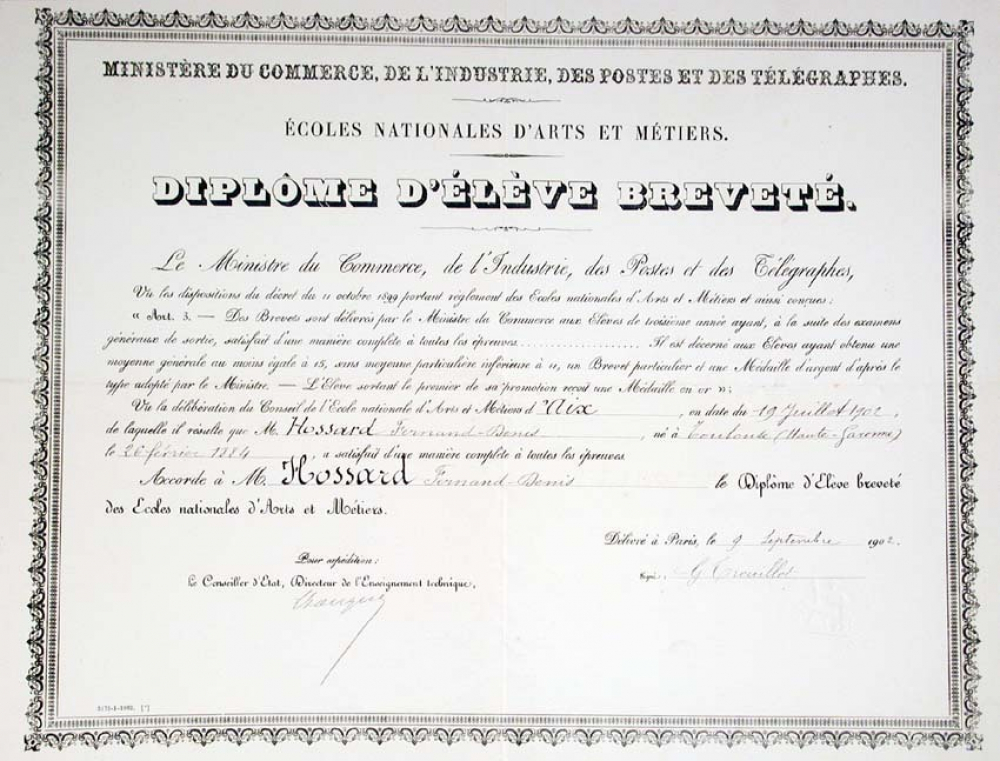 MINISTÈRE DU COMMERCE, DE L'INDUSTRIE, DES POSTES ET DES TÉLÉGRAPHES.
ÉCOLES NATIONALES D'ARTS ET MÉTIERS.
DIPLÔME D'ÉLÈVE BREVETÉ.
Le Ministre du Commerce, de l'Industrie, des Postes et des Télégraphes,
Vu les dispositions du décret du 11 octobre 1899 portant règlement des Écoles nationales d'Arts et Métiers et ainsi conçues :
« Art. 3. — Des Brevets sont délivrés par le Ministre du Commerce aux Élèves de troisième année ayant, à la suite des examens
généraux de sortie, satisfait d'une manière complète à toutes les épreuves.................... Il est décerné aux Élèves ayant obtenu une
moyenne générale au moins égale à 15, sans moyenne particulière inférieure à 11, un Brevet particulier et une Médaille d'argent d'après le
type adopté par le Ministre. — L'Élève sortant le premier de sa promotion reçoit une Médaille en or » ;
Vu la délibération du Conseil de l'École nationale d'Arts et Métiers d'Aix, en date du 19 Juillet 1902,
de laquelle il résulte que M. Hossard Fernand-Denis, né à Toulouse (Haute-Garonne)
le 26 février 1884, a satisfait d'une manière complète à toutes les épreuves
Accorde à M. Hossard Fernand-Denis le Diplôme d'Élève breveté
des Écoles nationales d'Arts et Métiers.
Délivré à Paris, le 9 Septembre 1902.
Signé : G Trouillot
Pour expédition :
Le Conseiller d'État, Directeur de l'Enseignement technique,